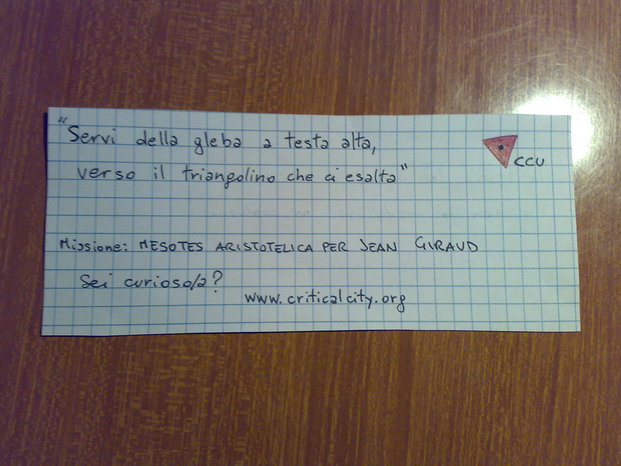 "Servi della gleba a testa alta,
verso il triangolino che ci esalta"
CCU
Missione: MESOTES ARISTOTELICA PER JEAN GIRAUD
Sei curioso/a?
www.criticalcity.org